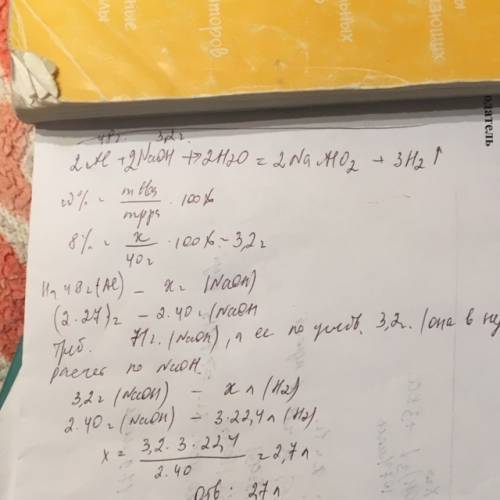 торов
одатель
48г. 3,2г
2Al + 2NaOH + 2H2O = 2NaAlO2 + 3H2↑
ω% = · 100%
8% = x/40г · 100% = 3,2г
На 48г (Al) – xг (NaOH)
(2·27)г – 2·40г (NaOH
Треб. 71г. (NaOH), а ее по 3,2г. (она в
расчет по NaOH.
3,2г (NaOH) – x л (H2)
2·40г (NaOH) – 3·22,4л (H2)
x = 3,2·3·22,4/2·40 = 2,7л
Отв: 2,7л